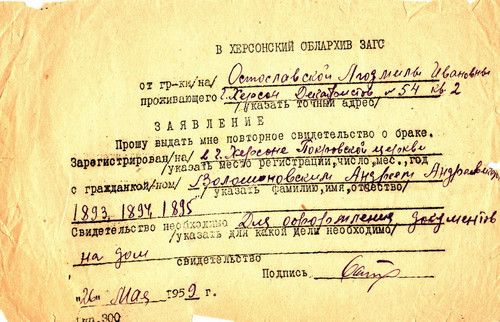 В ХЕРСОНСКИЙ ОБЛАРХИВ ЗАГС
от гр-ки/на/ Остославской Людмилы Ивановны
проживающего г. Херсон Декабристов № 54 кв 2
/указать точный адрес/
ЗАЯВЛЕНИЕ
Прошу выдать мне повторное свидетельство о браке.
Зарегистрирован/на/ в г. Херсоне Покровской церкви
/указать место регистрации, число, мес., год
с гражданкой/ном/ Волошановским Андреем Андреевичем
/указать фамилию, имя, отчество/
1893, 1894 1895
Свидетельство необходимо Для оформления документов
/указать для какой цели необходимо/
на дом
свидетельство
Подпись
"26" Мая 1959 г.
300